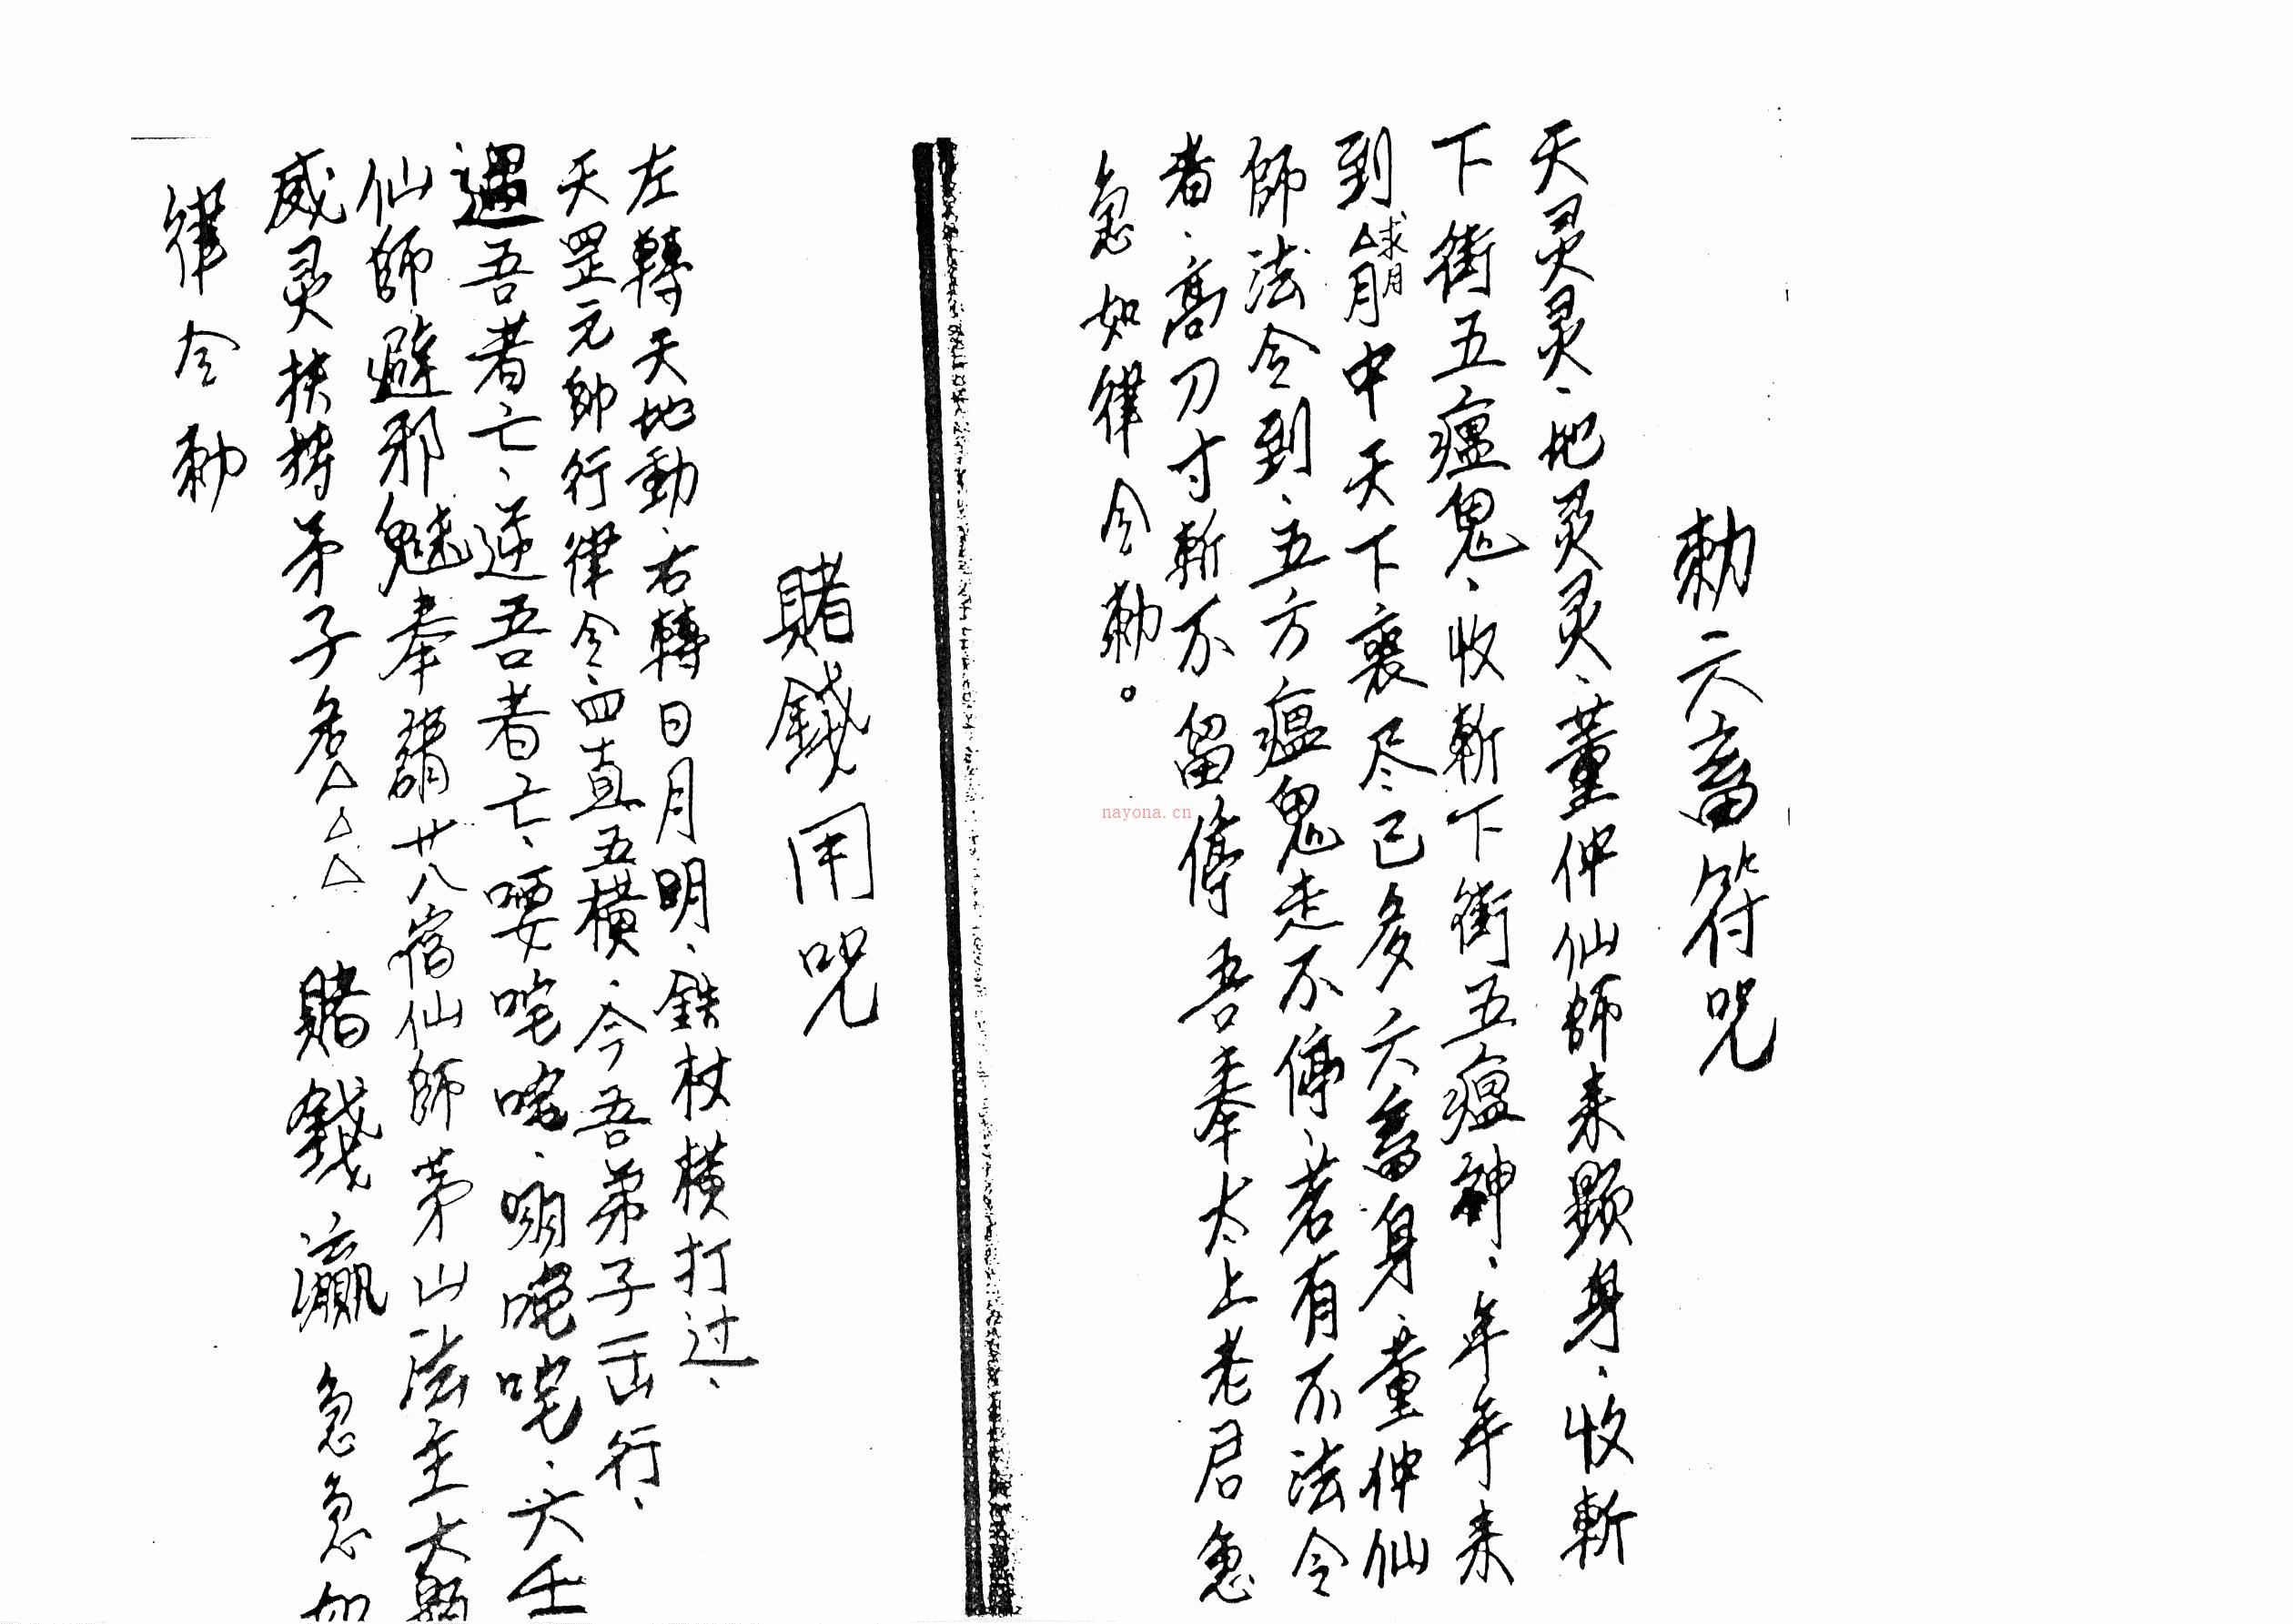 勅六畜符咒
天灵灵、地灵灵、董仲仙師来顕身、收斬
下街五瘟鬼、收斬下街五瘟神、年年来
到 中天下裏尽已多六畜身、董仲仙
師法令到、五方瘟鬼走不停、若有不法令
者、高刀寸斬不留停吾奉太上老君急
急如律令勅。
賭錢用咒
左轉天地動、右轉日月明、鉄杖横打过、
天罡元帥行律令、四直五横、今吾弟子 行、
遇吾者亡、逆吾者亡、 六壬
仙師避邪魅奉 廿八宿仙師茅山法主大顕
威灵扶持弟子名△△△ 賭錢瀛 急急如
律令勅
nayona.cn